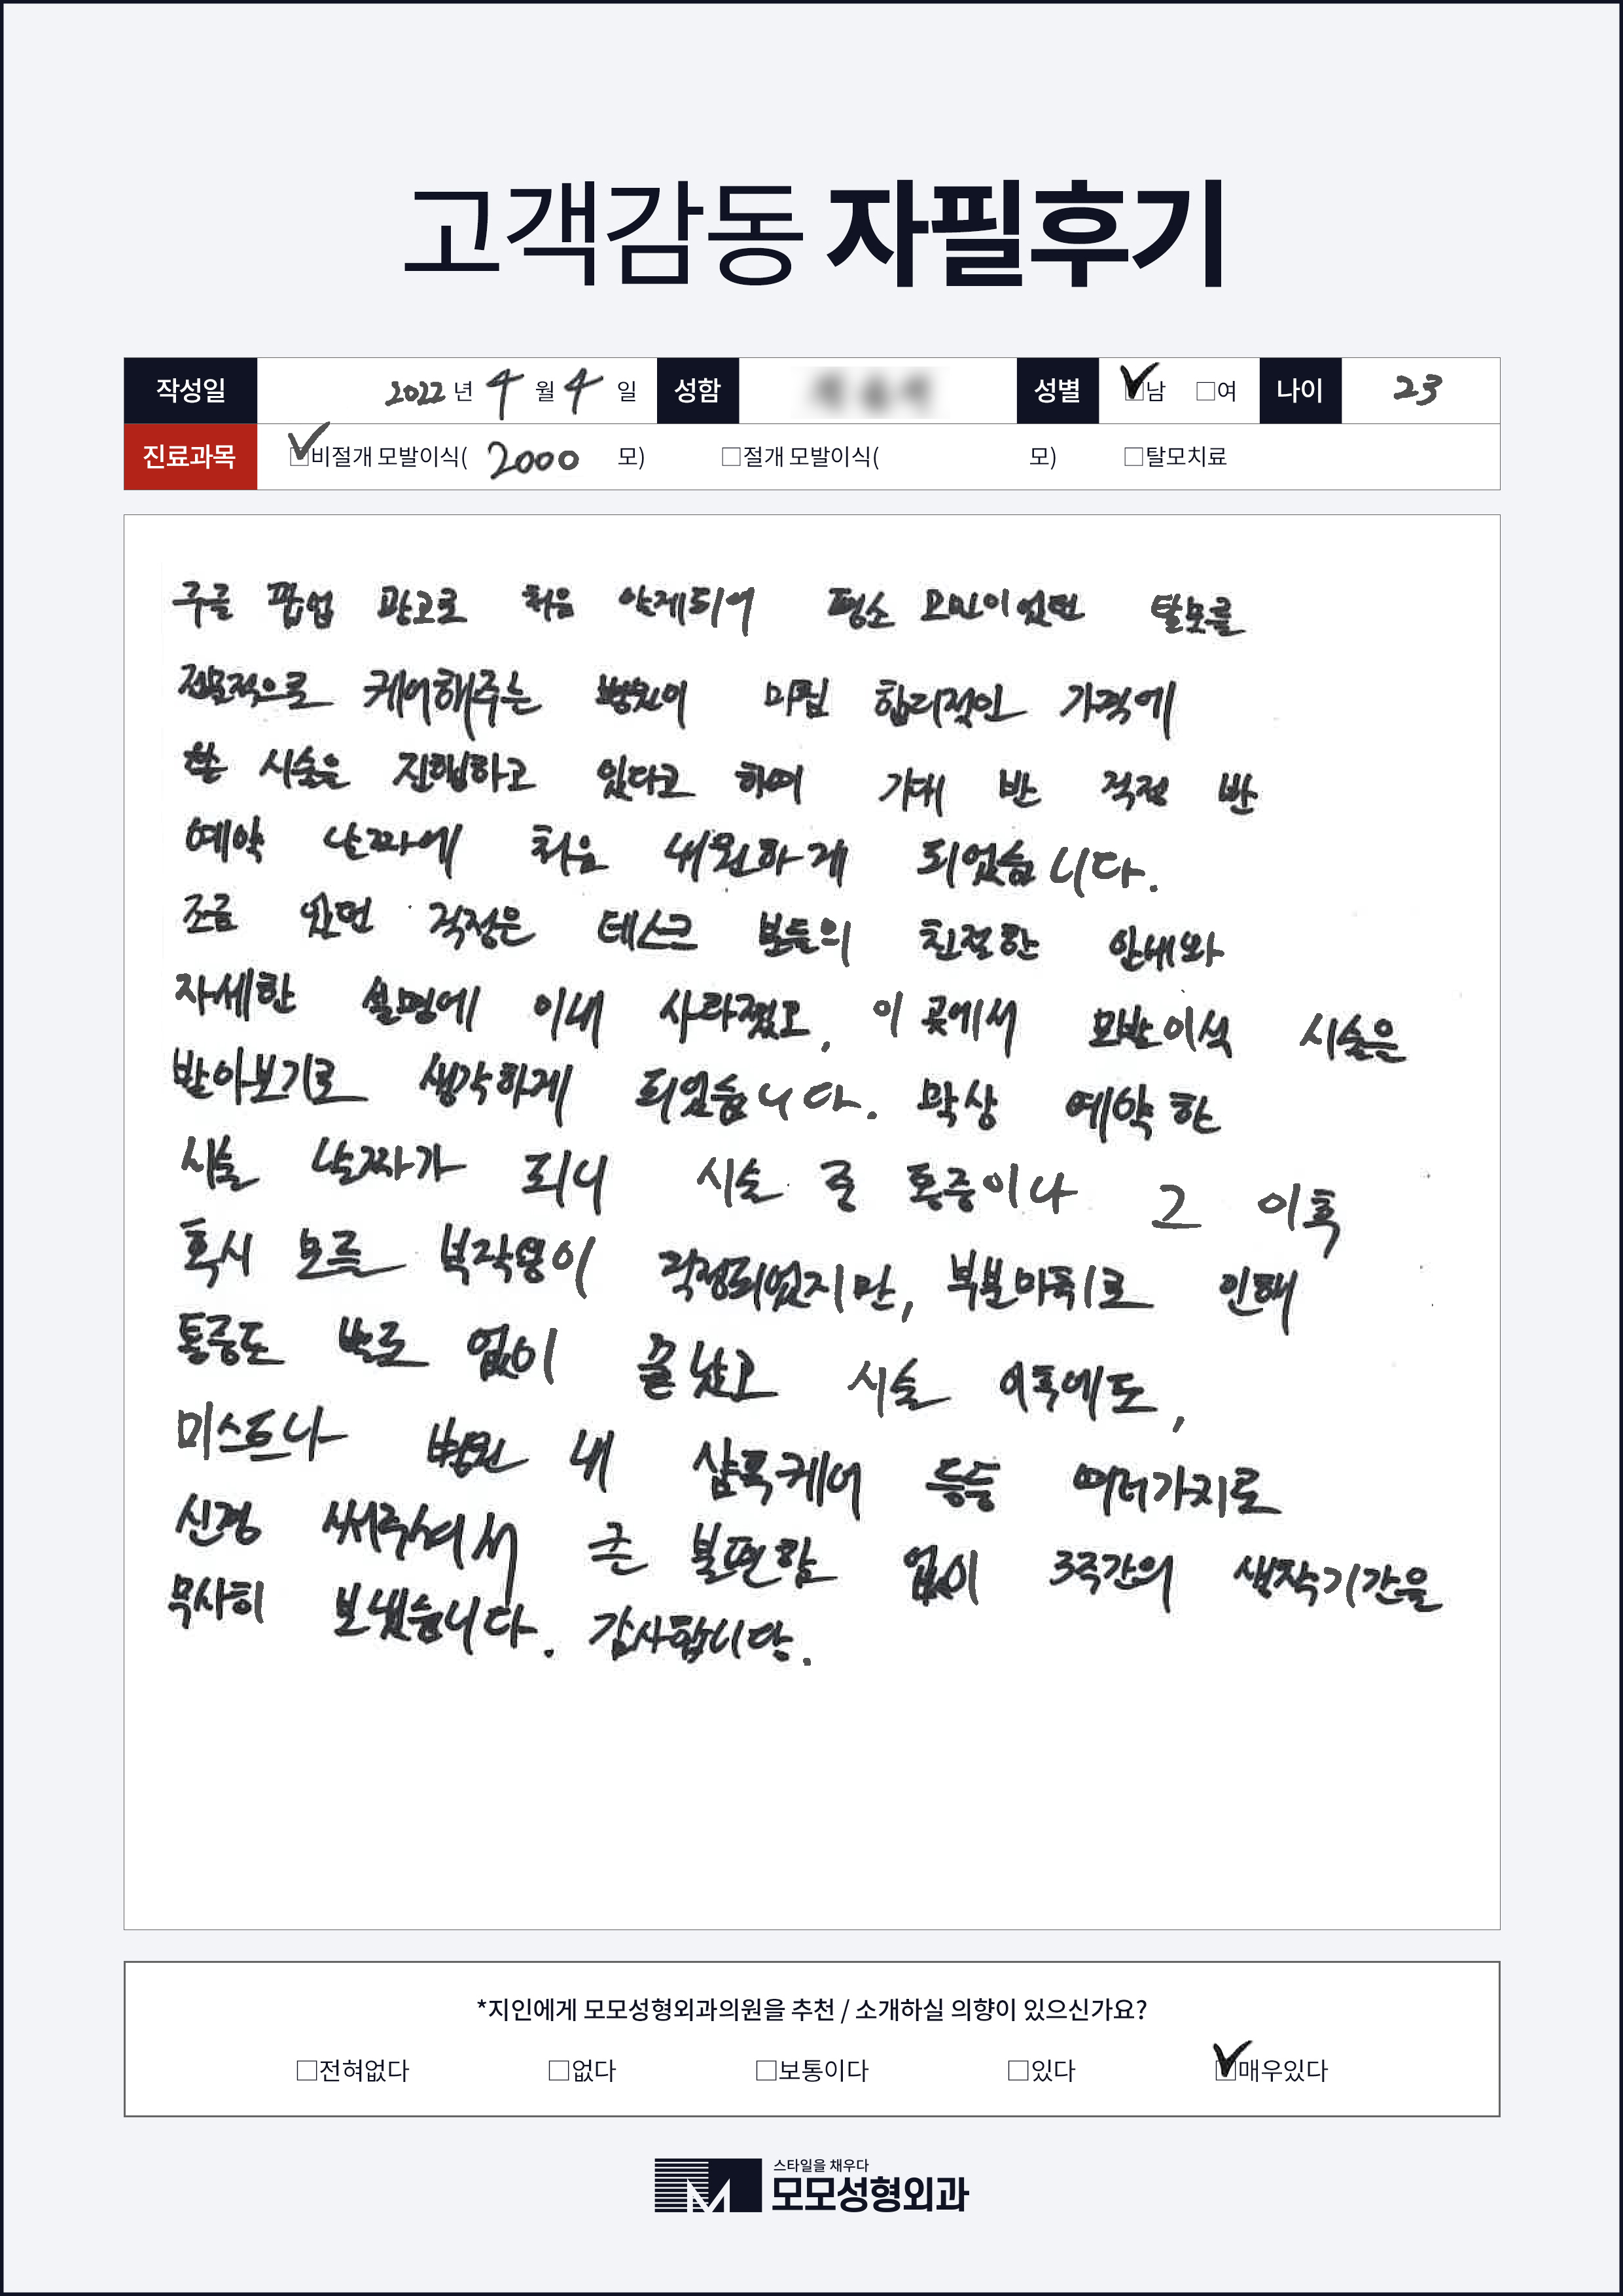 고객감동 자필후기
작성일 2022 년 4 월 4 일 성함 성별 ☑남 □여 나이 23
진료과목 ☑비절개 모발이식( 2000 모) □절개 모발이식( 모) □탈모치료
구글 팝업 광고로 처음 알게되어 평소 고민이었던 탈모를
전문적으로 케어해주는 병원이 마침 합리적인 가격에
시술을 진행하고 있다고 하여 기대 반 걱정 반
예약 날짜에 처음 내원하게 되었습니다.
조금 있던 걱정은 데스크 분들의 친절한 안내와
자세한 설명에 이내 사라졌고, 이 곳에서 모발이식 시술을
받아보기로 생각하게 되었습니다. 막상 예약한
시술 날짜가 되니 시술 중 통증이나 그 이후
혹시 모를 부작용이 걱정되었지만, 부분마취로 인해
통증도 별로 없이 끝났고 시술 이후에도,
미스트나 병원 내 샴푸케어 등등 여러가지로
신경 써주셔서 큰 불편함 없이 3주간의 생착기간을
무사히 보냈습니다. 감사합니다.
*지인에게 모모성형외과의원을 추천 / 소개하실 의향이 있으신가요?
□전혀없다 □없다 □보통이다 □있다 ☑매우있다
스타일을 채우다
모모성형외과